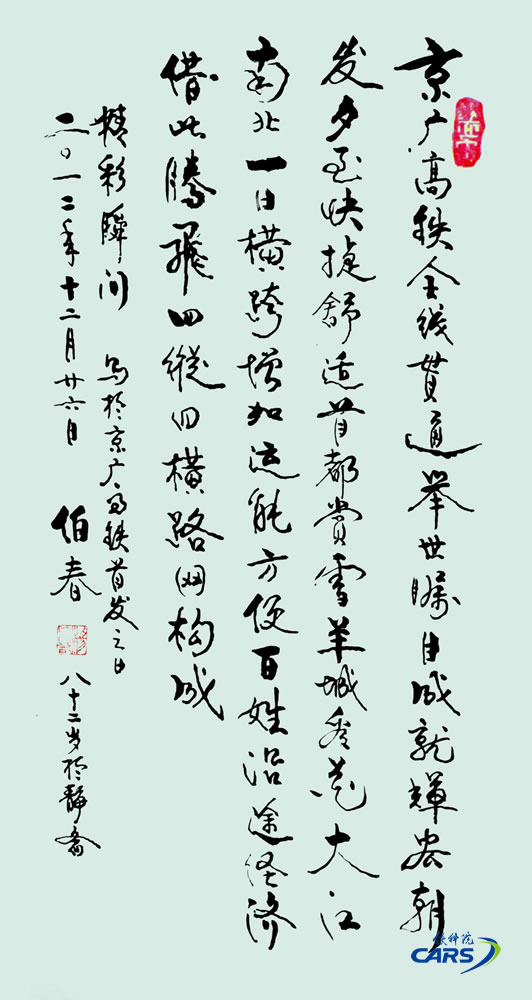 京广高铁全线貫通举世瞩目成就輝宏朝
发夕至快捷舒适首都赏雪羊城看花大江
南北一日横跨增加流能方便百姓沿途经济
借此腾飛四縱四横路网构成
精彩瞬间 写於京广高铁首发之日
二〇一二年十二月廿六日 伯春 八十二岁於静斋
铁科院
CARS